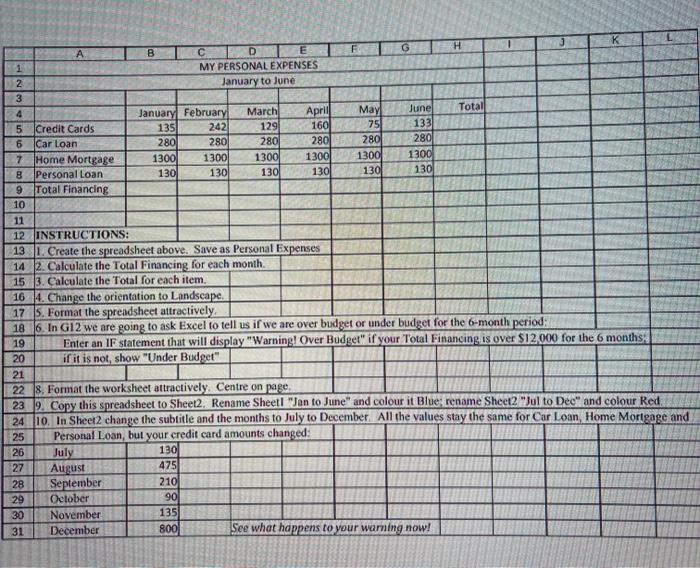 A B C D E F G H I J K L
1 MY PERSONAL EXPENSES
2 January to June
3
4 January February March April May June Total
5 Credit Cards 135 242 129 160 75 133
6 Car Loan 280 280 280 280 280 280
7 Home Mortgage 1300 1300 1300 1300 1300 1300
8 Personal Loan 130 130 130 130 130 130
9 Total Financing
10
11
12 INSTRUCTIONS:
13 1. Create the spreadsheet above. Save as Personal Expenses
14 2. Calculate the Total Financing for each month.
15 3. Calculate the Total for each item.
16 4. Change the orientation to Landscape.
17 5. Format the spreadsheet attractively.
18 6. In G12 we are going to ask Excel to tell us if we are over budget or under budget for the 6-month period:
19 Enter an IF statement that will display "Warning! Over Budget" if your Total Financing is over $12,000 for the 6 months;
20 if it is not, show "Under Budget"
21
22 8. Format the worksheet attractively. Centre on page.
23 9. Copy this spreadsheet to Sheet2. Rename Sheet1 "Jan to June" and colour it Blue; rename Sheet2 "Jul to Dec" and colour Red.
24 10. In Sheet2 change the subtitle and the months to July to December. All the values stay the same for Car Loan, Home Mortgage and
25 Personal Loan, but your credit card amounts changed:
26 July 130
27 August 475
28 September 210
29 October 90
30 November 135
31 December 800 See what happens to your warning now!